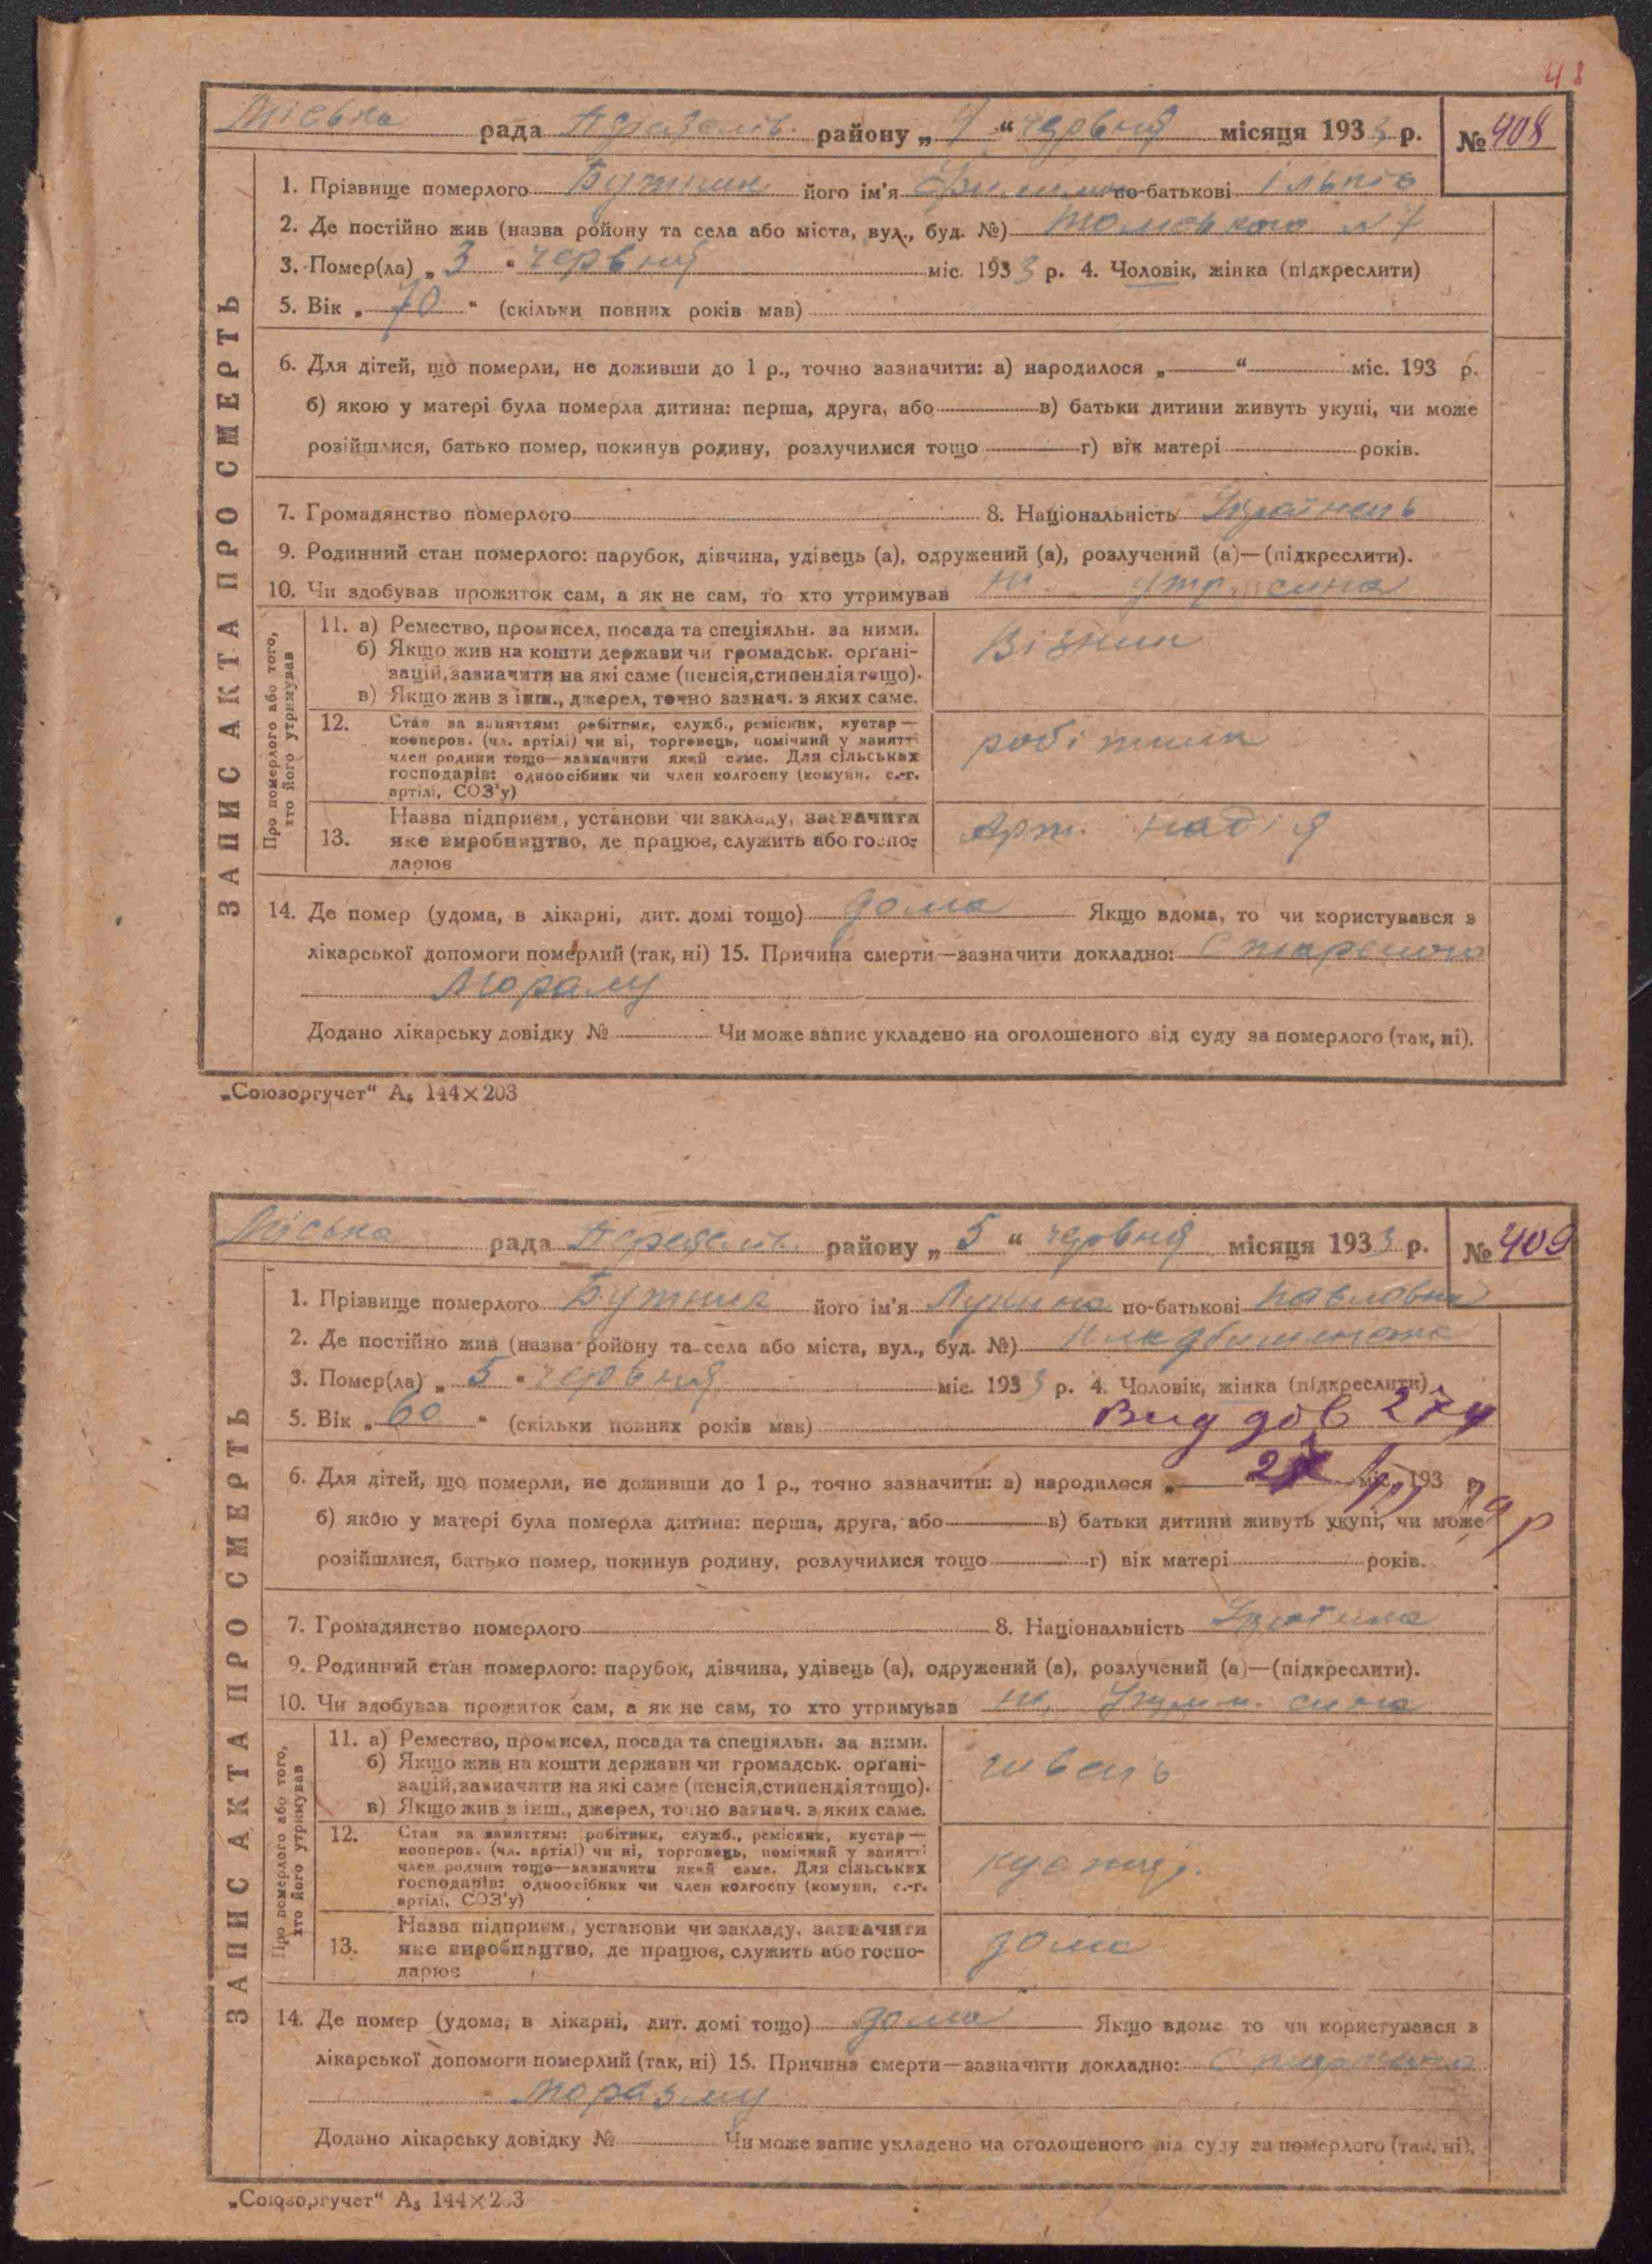 48
Міська рада район у „ 4 “ червня місяця 1933 р. № 408
1. Прізвище померлого Бутник його ім'я Филимон по-батькові Ільків
2. Де постійно жив (назва ройону та села або міста, вул., буд. №) Томського №7
3. Помер(ла) „ 3 “ червня міс. 1933 р. 4. Чоловік, жінка (підкреслити)
5. Вік „ 70 “ (скільки повних років мав)
6. Для дітей, що померли, не доживши до 1 р., точно зазначити: а) народилося „ “ міс. 193 р.
б) якою у матері була померла дитина: перша, друга, або в) батьки дитини живуть укупі, чи може
розійшлися, батько помер, покинув родину, розлучилися тощо г) вік матері років.
7. Громадянство померлого 8. Національність Українець
9. Родинний стан померлого: парубок, дівчина, удівець (а), одружений (а), розлучений (а)—(підкреслити).
10. Чи здобував прожиток сам, а як не сам, то хто утримував ні утр. сина
ЗАПИС АКТА ПРО СМЕРТЬ
Про померлого або того, хто його утримував
11. а) Ремество, промисел, посада та спеціяльн. за ними.
б) Якщо жив на кошти держави чи громадськ. орґані-
зацій, зазначити на які саме (пенсія, стипендія тощо).
в) Якщо жив з інш., джерел, точно зазнач. з яких саме.
Візник
12. Стан за заняттям: робітник, служб., ремісник, кустар—
кооперов. (чл. артілі) чи ні, торговець, помічний у занятті
член родини тощо—зазначити який саме. Для сільських
господарів: одноосібник чи член колгоспу (комуни, с.-г.
артілі, СОЗ'у)
робітник
13. Назва підприєм., установи чи закладу, зазначити
яке виробництво, де працює, служить або госпо-
дарює
Арт. надія
14. Де помер (удома, в лікарні, дит. домі тощо) дома Якщо вдома, то чи користувався з
лікарської допомоги померлий (так, ні) 15. Причина смерти—зазначити докладно: Старечого
Моразму
Додано лікарську довідку № Чи може запис укладено на оголошеного від суду за померлого (так, ні).
„Союзоргучет“ А₅ 144×203
Міська рада району „ 5 “ червня місяця 1933 р. № 409
1. Прізвище померлого Бутник його ім'я Лукина по-батькові Павловна
2. Де постійно жив (назва ройону та села або міста, вул., буд. №)
3. Помер(ла) „ 5 “ червня міс. 1933 р. 4. Чоловік, жінка (підкреслити)
5. Вік „ 60 “ (скільки повних років мав) Вид дов 274
6. Для дітей, що померли, не доживши до 1 р., точно зазначити: а) народилося „ “ міс. 193 р.
б) якою у матері була померла дитина: перша, друга, або в) батьки дитини живуть укупі, чи може
розійшлися, батько помер, покинув родину, розлучилися тощо г) вік матері років.
7. Громадянство померлого 8. Національність
9. Родинний стан померлого: парубок, дівчина, удівець (а), одружений (а), розлучений (а)—(підкреслити).
10. Чи здобував прожиток сам, а як не сам, то хто утримував ні, сина
ЗАПИС АКТА ПРО СМЕРТЬ
Про померлого або того, хто його утримував
11. а) Ремество, промисел, посада та спеціяльн. за ними.
б) Якщо жив на кошти держави чи громадськ. орґані-
зацій, зазначити на які саме (пенсія, стипендія тощо).
в) Якщо жив з інш., джерел, точно зазнач. з яких саме.
швець
12. Стан за заняттям: робітник, служб., ремісник, кустар—
кооперов. (чл. артілі) чи ні, торговець, помічний у занятті
член родини тощо—зазначити який саме. Для сільських
господарів: одноосібник чи член колгоспу (комуни, с.-г.
артілі, СОЗ'у)
кустар.
13. Назва підприєм., установи чи закладу, зазначити
яке виробництво, де працює, служить або госпо-
дарює
дома
14. Де помер (удома, в лікарні, дит. домі тощо) дома Якщо вдома то чи користувався з
лікарської допомоги померлий (так, ні) 15. Причина смерти—зазначити докладно: Старечого
Моразму
Додано лікарську довідку № Чи може запис укладено на оголошеного від суду за померлого (так, ні).
„Союзоргучет“ А₅ 144×203